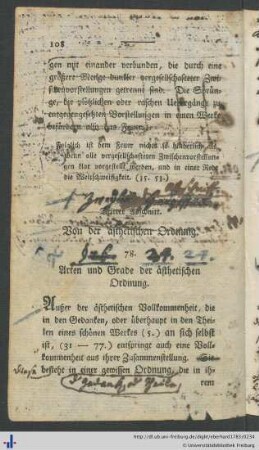 108
gen mit einander verbunden, die durch eine
größere Menge dunkler vergesellschafteter Zwi-
schenvorstellungen getrennt sind. Die Sprün-
ge, die plötzlichen oder raschen Uebergänge zu
entgegengesetzten Vorstellungen in einem Werke
befördern also das Feuer.
Folglich ist dem Feuer nichts so hinderlich, als
wenn alle vergesellschafteten Zwischenvorstellun-
gen klar vorgestellt werden, und in einer Rede
die Weitschweifigkeit. (15. 53.)
Abschnitt.
Von der ästhetischen Ordnung.
78.
Arten und Grade der ästhetischen
Ordnung.
Außer der ästhetischen Vollkommenheit, die
in den Gedanken, oder überhaupt in den Thei-
len eines schönen Werkes (5.) an sich selbst
ist, (31 — 77.) entspringt auch eine Voll-
kommenheit aus ihrer Zusammenstellung. Sie
besteht in einer gewissen Ordnung, die in ih-
rem
http://dl.ub.uni-freiburg.de/diglit/eberhard1783/0234
© Universitätsbibliothek Freiburg